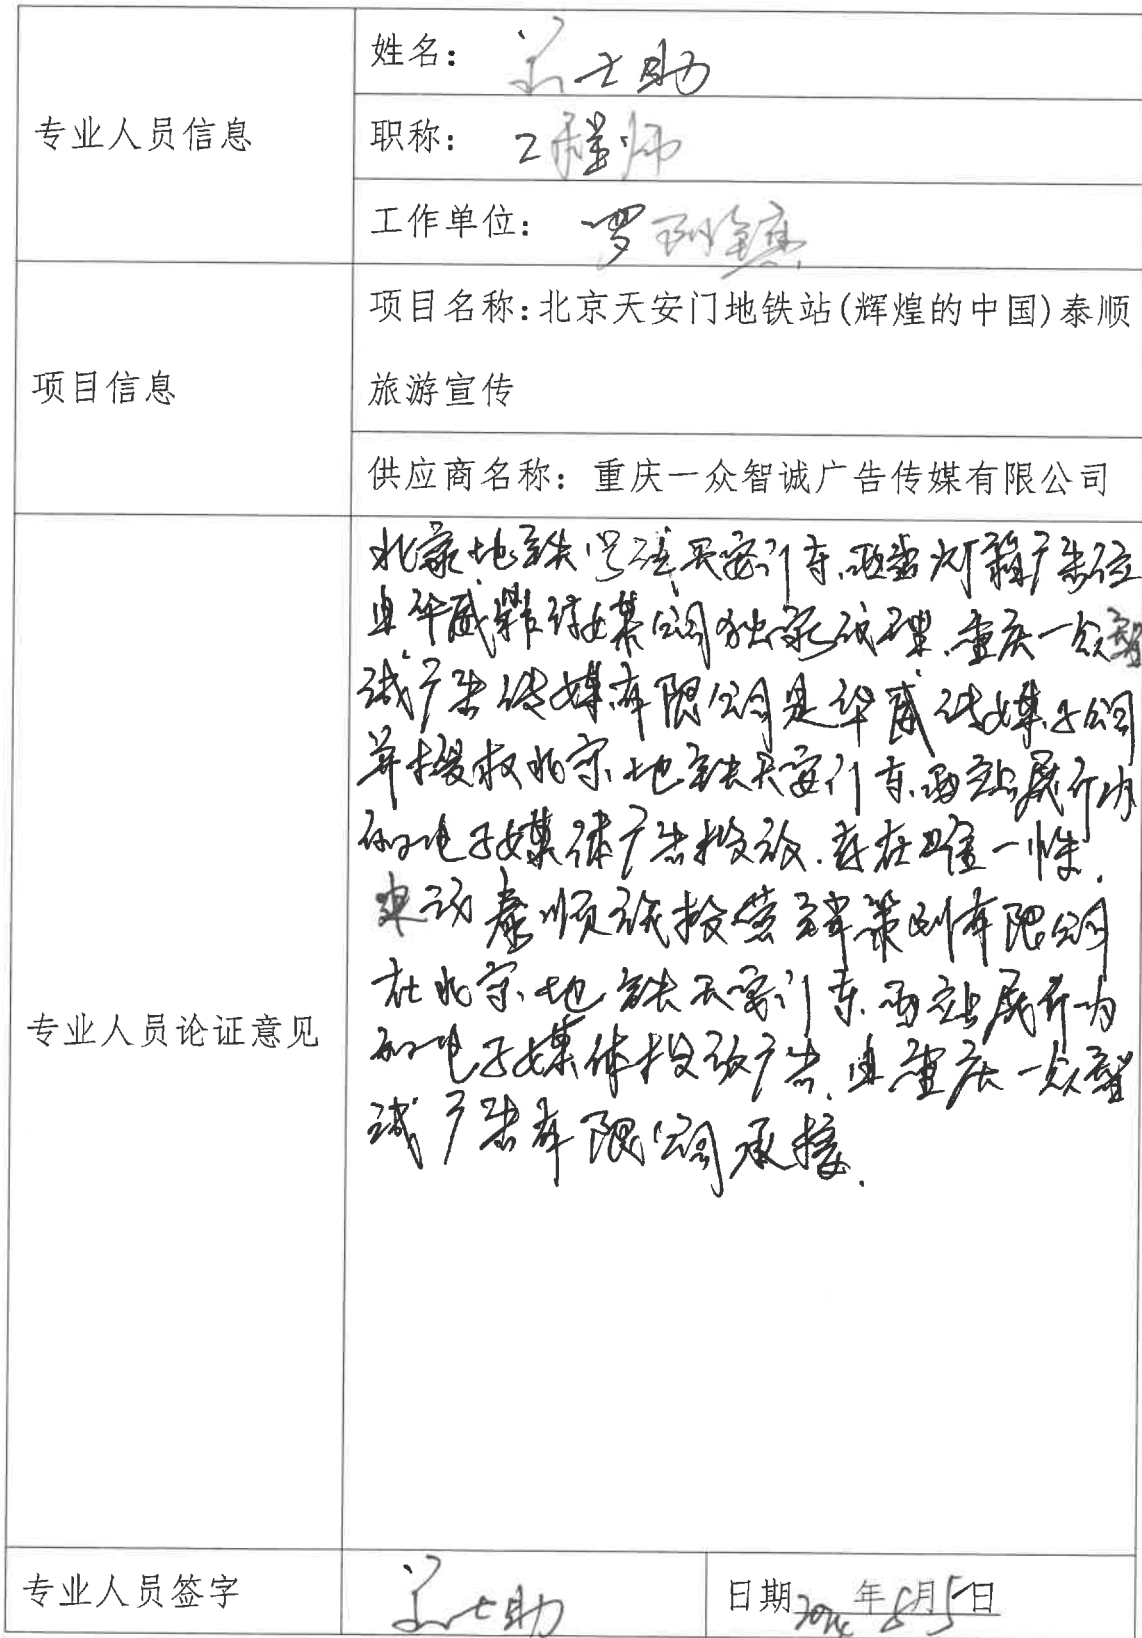 专业人员信息
姓名：
职称：工程师
工作单位：罗阳镇
项目信息
项目名称:北京天安门地铁站(辉煌的中国)泰顺
旅游宣传
供应商名称：重庆一众智诚广告传媒有限公司
专业人员论证意见
北京地铁1号线天安门东、西站灯箱广告位
由华威 传媒公司独家代理、重庆一众智
诚广告传媒有限公司是华威传媒子公司
并授权北京地铁天安门东、西站展厅内
的电子媒体广告投放、存在唯一性.
建议泰顺旅投营销策划有限公司
在北京地铁天安门东、西站展厅内
的电子媒体投放广告、由重庆一众智
诚广告有限公司承接.
专业人员签字
日期2024年8月5日